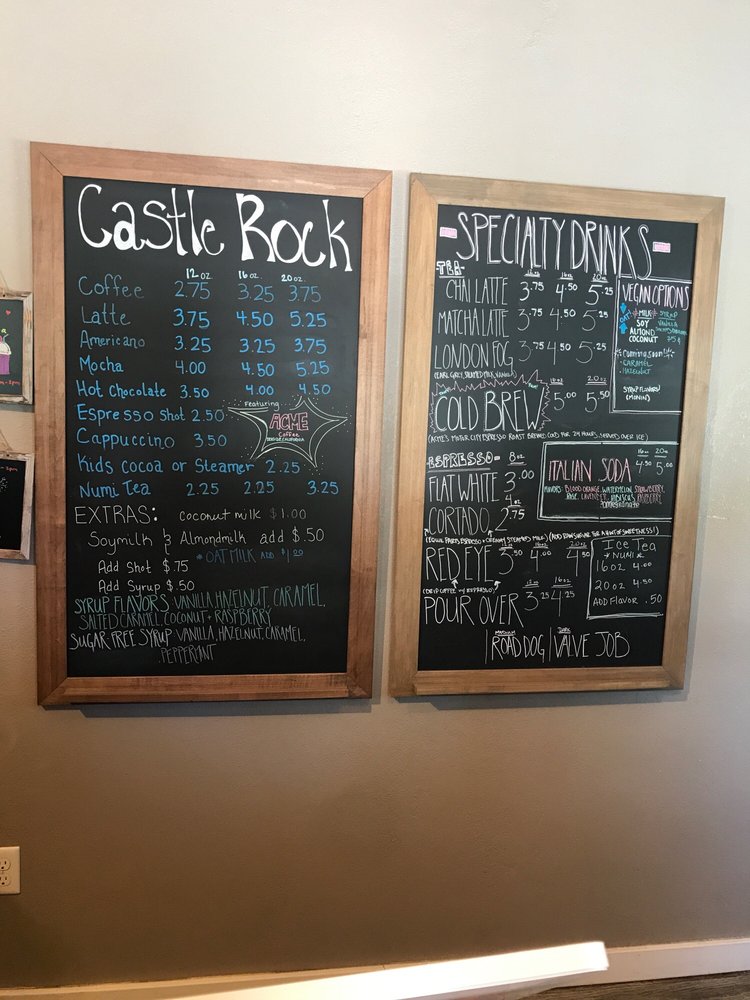 Castle Rock
12 oz. 16 oz. 20 oz.
Coffee 2.75 3.25 3.75
Latte 3.75 4.50 5.25
Americano 3.25 3.25 3.75
Mocha 4.00 4.50 5.25
Hot Chocolate 3.50 4.00 4.50
Espresso Shot 2.50
Cappuccino 3.50
Featuring
ACME
Coffee
Kids cocoa or Steamer 2.25
Numi Tea 2.25 2.25 3.25
EXTRAS: coconut milk $1.00
Soymilk & Almondmilk add $.50
* OAT MILK ADD $1.00
Add Shot $.75
Add Syrup $.50
SYRUP FLAVORS VANILLA, HAZELNUT, CARAMEL,
SALTED CARAMEL, COCONUT + RASPBERRY
SUGAR FREE SYRUP VANILLA, HAZELNUT, CARAMEL,
PEPPERMINT
SPECIALTY DRINKS
TEA- 12oz 16oz 20oz
CHAI LATTE 3.75 4.50 5.25
MATCHA LATTE 3.75 4.50 5.25
LONDON FOG 3.75 4.50 5.25
(EARL GREY, STEAMED MILK, VANILLA)
VEGAN OPTIONS
OAT *MILK* SYRUP
SOY VANILLA
ALMOND
COCONUT 75¢
*Coming Soon!*
- CARAMEL
- HAZELNUT
SYRUP FLAVORS!
(MONIN)
16oz 20oz
COLD BREW 5.00 5.50
(ACME'S MOTOR CITY ESPRESSO ROAST BREWED COLD FOR 24 HOURS. SERVED OVER ICE)
ESPRESSO- 8oz
FLAT WHITE 3.00
4oz
CORTADO 2.75
(EQUAL PARTS ESPRESSO + CREAMY STEAMED MILK) (ADD RAW SUGAR FOR A HINT OF SWEETNESS!)
16oz 20oz
ITALIAN SODA 4.50 5.00
FLAVORS: BLOOD ORANGE, WATERMELON, STRAWBERRY,
ROSE, LAVENDER, HIBISCUS, RASPBERRY
12oz 16oz 20oz
RED EYE 3.50 4.00 4.50
(DRIP COFFEE W/ ESPRESSO)
12oz 16oz
POUR OVER 3.25 4.25
Ice Tea
*NUMI*
16oz 4.00
20oz 4.50
ADD FLAVOR .50
MEDIUM DARK
ROAD DOG VALVE JOB